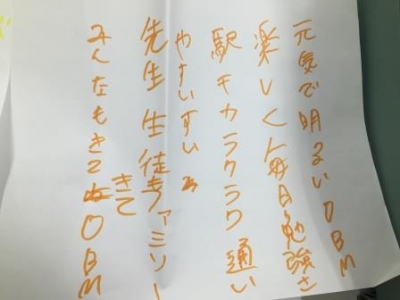 元気で明るいOBM
楽しく毎日勉強さ
駅チカラクラク通い
やすいすい
先生生徒ファミリー
きて
みんなもきてOBM